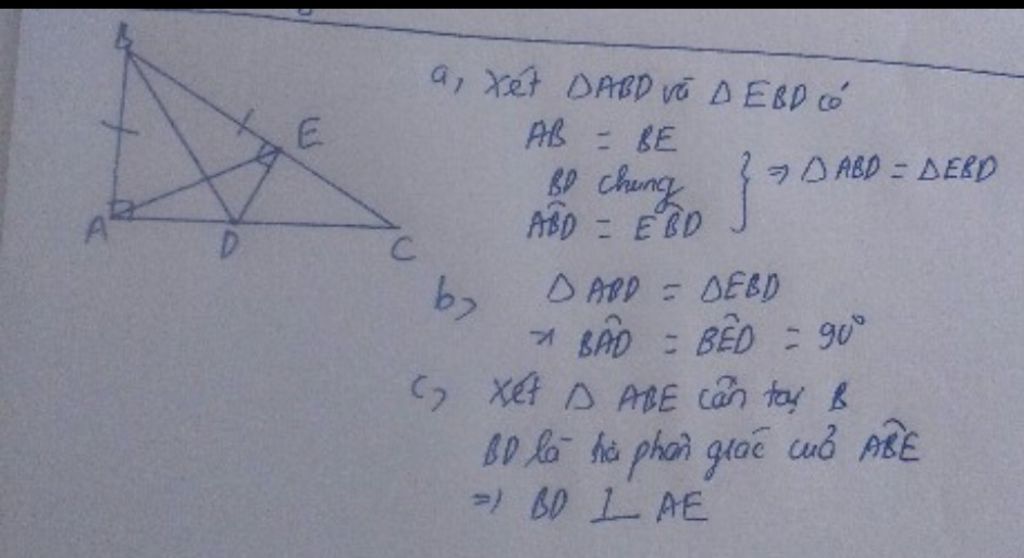 B
E
A
D
C
a, Xét △ABD và △EBD có
AB = BE
BD chung
ABD̂ = EB̂D
} ⇒ △ABD = △EBD
b, △ABD = △EBD
⇒ BÂD = BÊD = 90°
c, Xét △ABE cân tại B
BD là phân giác cuả AB̂E
⇒ BD ⊥ AE